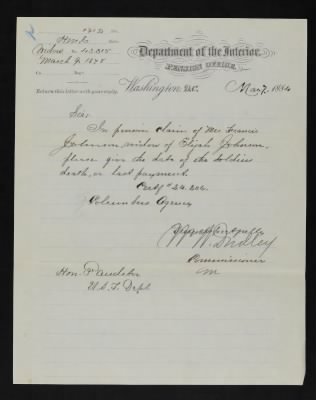 Department of the Interior,
PENSION OFFICE,
March 9, 1878
Return this letter with your reply.
Washington, D.C. May 7, 1884
Sir:
In pension claim of Mrs Francis
Johnson, widow of Elijah Johnson,
please give the date of the soldiers
death, or last payment.
Ctf # 24.206.
Columbus Agency
W. W. Dudley
Commissioner
Hon.
U.S. Dept